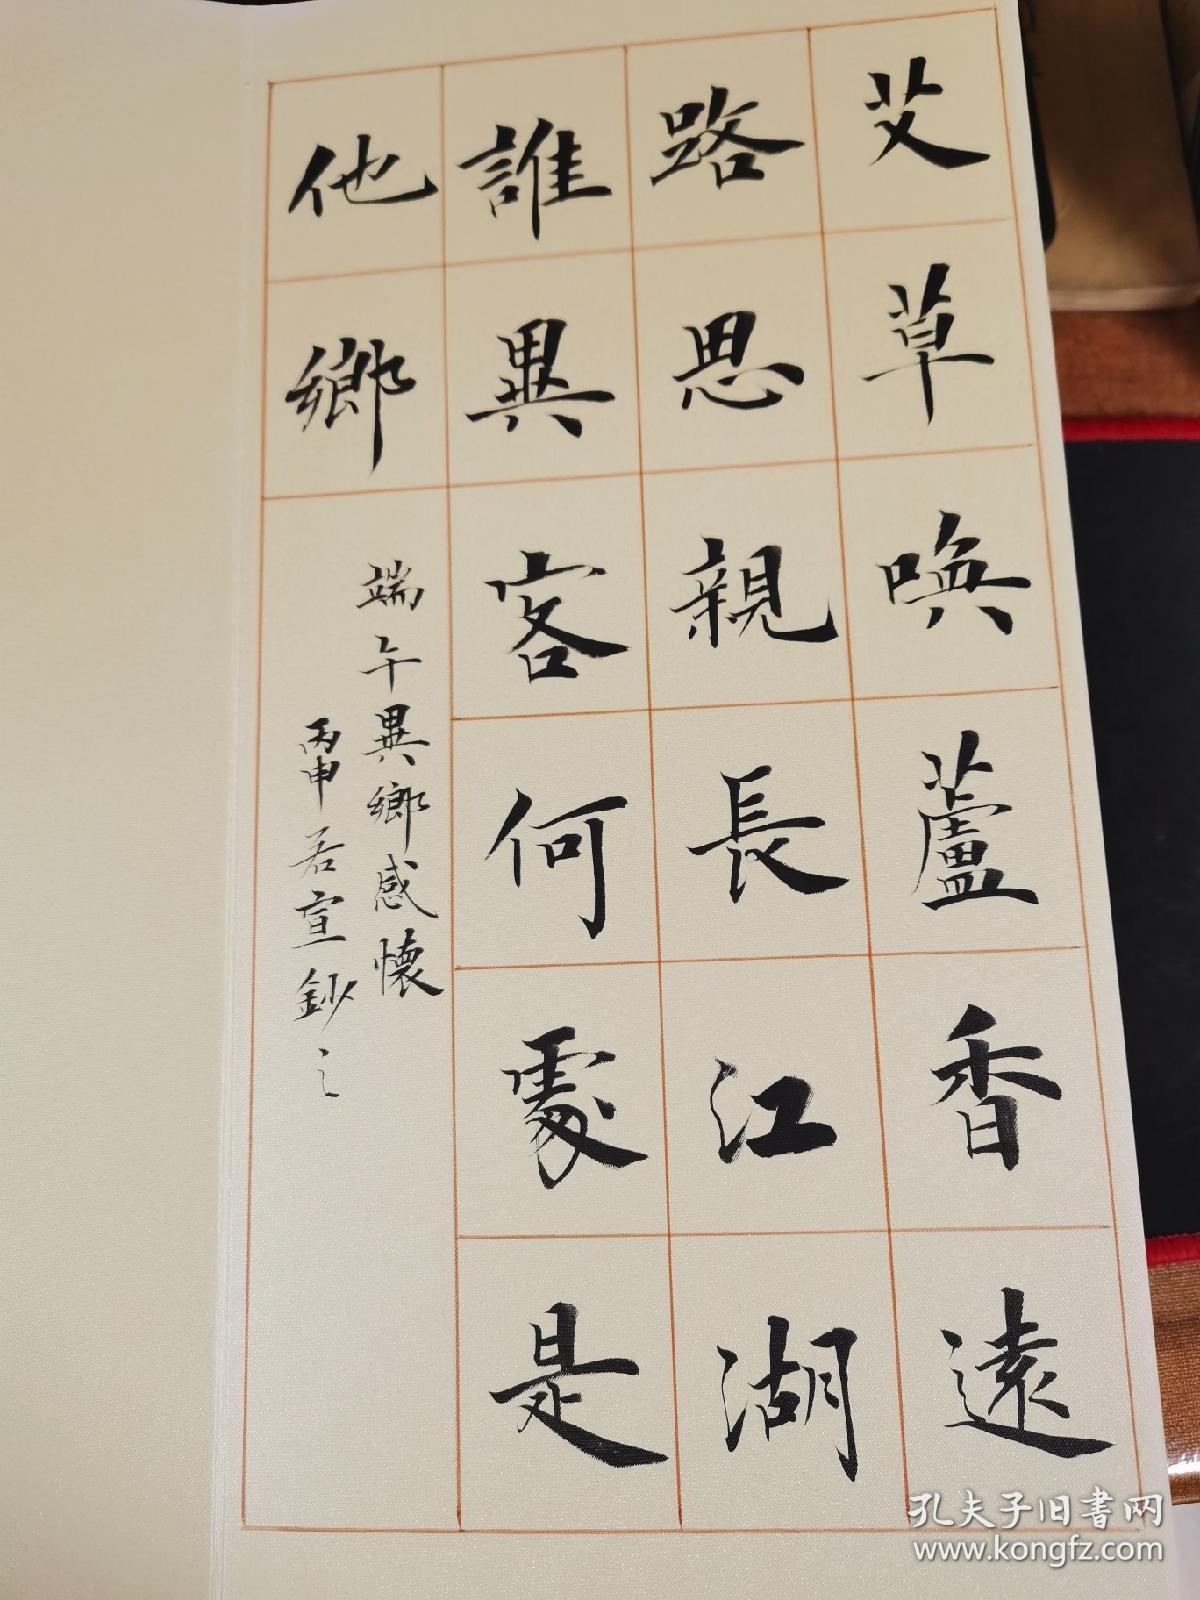 艾草喚蘆香遠
路思親長江湖
誰異客何處是
他鄉
端午異鄉感懷
丙申若宣鈔之
孔夫子旧書网
www.kongfz.com